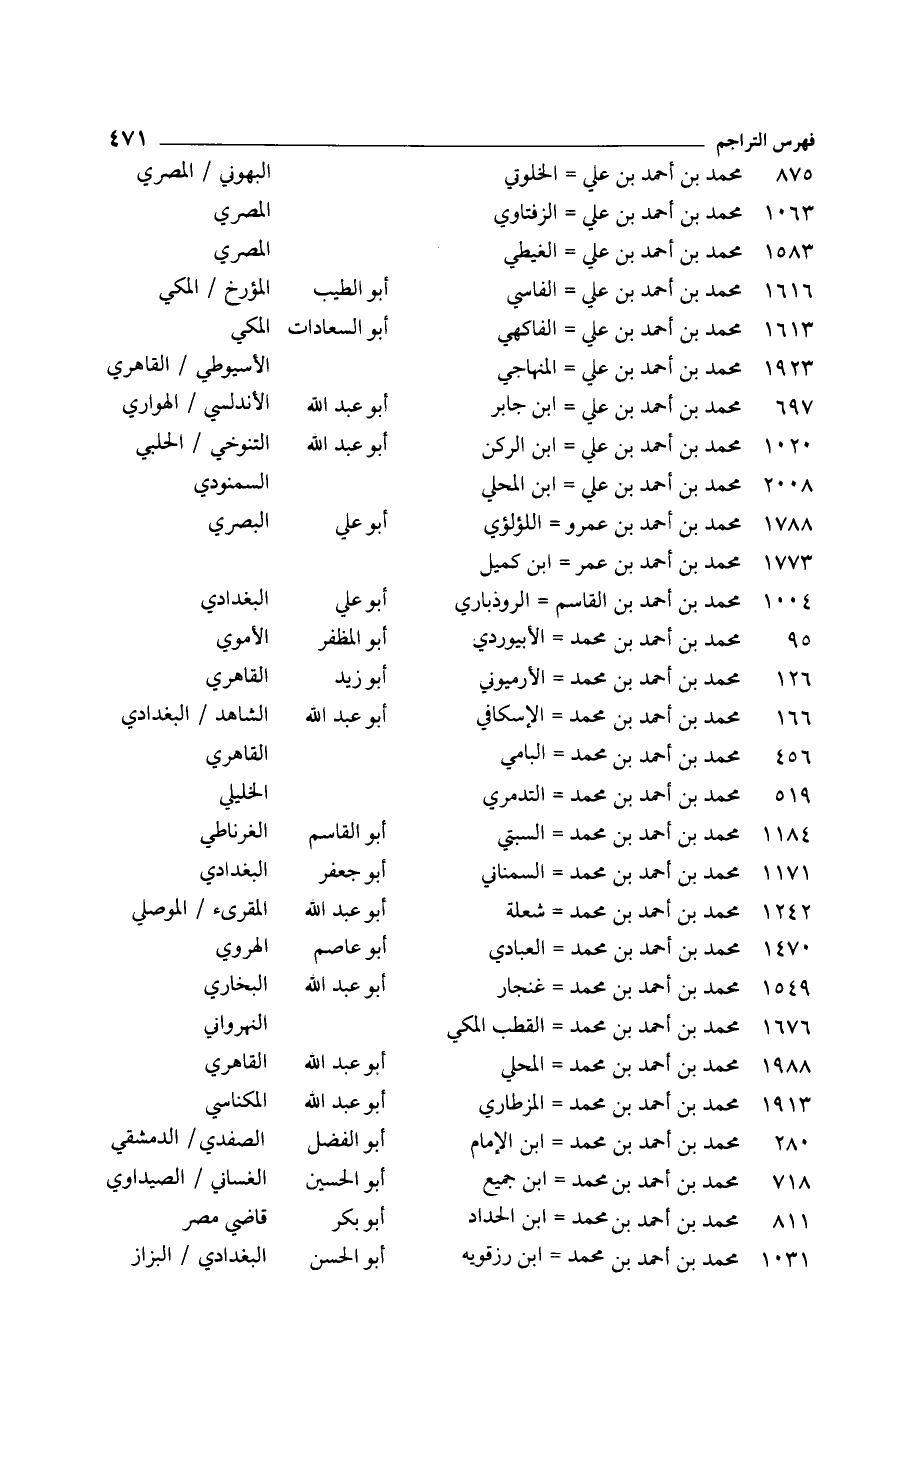 فهرس التراجم ٤٧١
٨٧٥ محمد بن أحمد بن علي = الخلوتي البهوتي / المصري
١٠٦٣ محمد بن أحمد بن علي = الزفتاوي المصري
١٥٨٣ محمد بن أحمد بن علي = الغيطي المصري
١٦١٦ محمد بن أحمد بن علي = الفاسي أبو الطيب المؤرخ / المكي
١٦١٣ محمد بن أحمد بن علي = الفاكهي أبو السعادات المكي
١٩٢٣ محمد بن أحمد بن علي = المنهاجي الأسيوطي / القاهري
٦٩٧ محمد بن أحمد بن علي = ابن جابر أبو عبد الله الأندلسي / الهواري
١٠٢٠ محمد بن أحمد بن علي = ابن الركن أبو عبد الله التنوخي / الحلبي
٢٠٠٨ محمد بن أحمد بن علي = ابن المحلي السمنودي
١٧٨٨ محمد بن أحمد بن عمرو = اللؤلؤي أبو علي البصري
١٧٧٣ محمد بن أحمد بن عمر = ابن كميل
١٠٠٤ محمد بن أحمد بن القاسم = الروذباري أبو علي البغدادي
٩٥ محمد بن أحمد بن محمد = الأبيوردي أبو المظفر الأموي
١٢٦ محمد بن أحمد بن محمد = الأرميوني أبو زيد القاهري
١٦٦ محمد بن أحمد بن محمد = الإسكافي أبو عبد الله الشاهد / البغدادي
٤٥٦ محمد بن أحمد بن محمد = البامي القاهري
٥١٩ محمد بن أحمد بن محمد = التدمري الخليلي
١١٨٤ محمد بن أحمد بن محمد = السبتي أبو القاسم الغرناطي
١١٧١ محمد بن أحمد بن محمد = السمناني أبو جعفر البغدادي
١٢٤٢ محمد بن أحمد بن محمد = شعلة أبو عبد الله المقرىء / الموصلي
١٤٧٠ محمد بن أحمد بن محمد = العبادي أبو عاصم الهروي
١٥٤٩ محمد بن أحمد بن محمد = غنجار أبو عبد الله البخاري
١٦٧٦ محمد بن أحمد بن محمد = القطب المكي النهرواني
١٩٨٨ محمد بن أحمد بن محمد = المحلي أبو عبد الله القاهري
١٩١٣ محمد بن أحمد بن محمد = المزطاري أبو عبد الله المكناسي
٢٨٠ محمد بن أحمد بن محمد = ابن الإمام أبو الفضل الصفدي / الدمشقي
٧١٨ محمد بن أحمد بن محمد = ابن جميع أبو الحسين الغساني / الصيداوي
٨١١ محمد بن أحمد بن محمد = ابن الحداد أبو بكر قاضي مصر
١٠٣١ محمد بن أحمد بن محمد = ابن رزقويه أبو الحسن البغدادي / البزاز